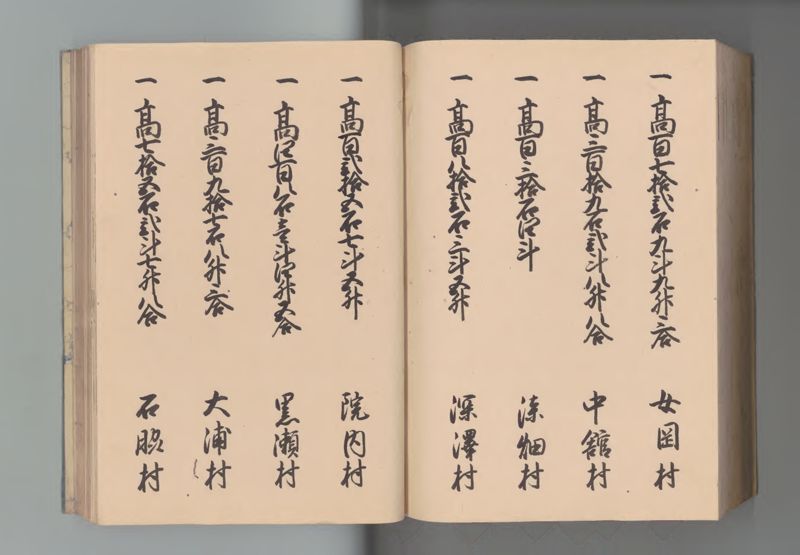 一 高百七拾弐石九斗九升二合 女岡村
一 高三百拾九石弐斗八升八合 中館村
一 高百三拾石四斗 漆畑村
一 高百八拾弐石三斗五升 深澤村
一 高百弐拾五石七斗五升 院内村
一 高四百八石壱斗四升五合 黒瀬村
一 高三百九拾七石八升二合 大浦村
一 高七拾五石弐斗七升八合 石脇村